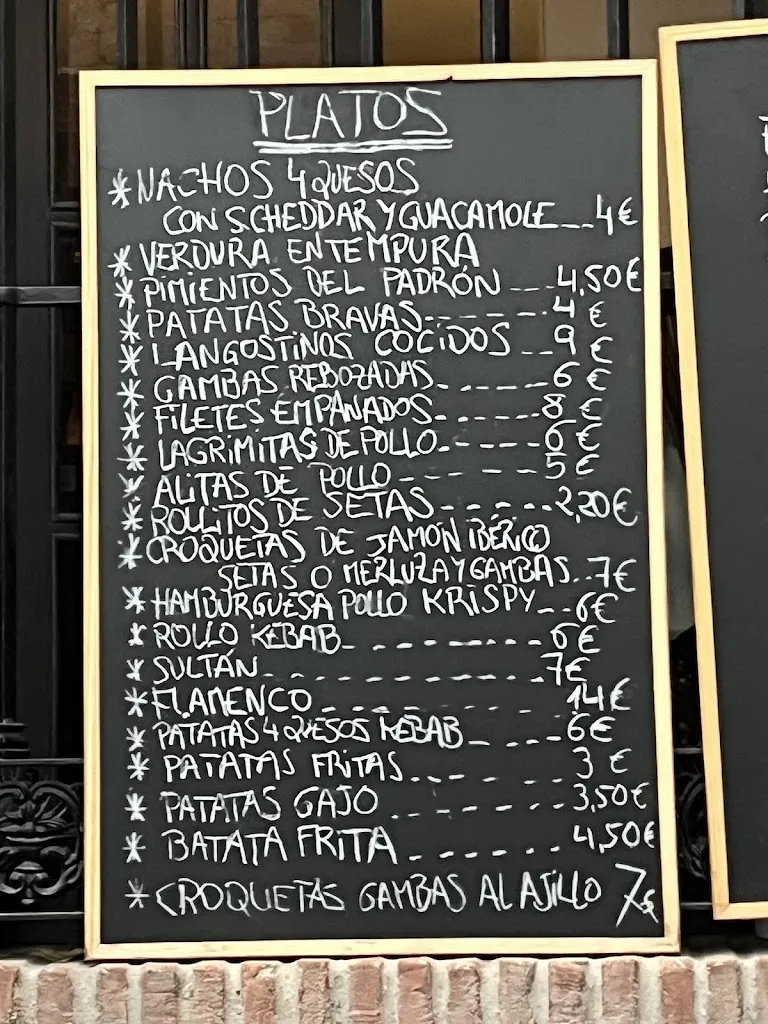 PLATOS
* NACHOS 4 QUESOS
CON S.CHEDDAR Y GUACAMOLE__ 4€
* VERDURA EN TEMPURA
* PIMIENTOS DEL PADRÓN --- 4,50€
* PATATAS BRAVAS------- 4 €
* LANGOSTINOS COCIDOS -- 9 €
* GAMBAS REBOZADAS------ 6 €
* FILETES EMPANADOS------ 8 €
* LAGRIMITAS DE POLLO----- 6 €
* ALITAS DE POLLO ------ 5 €
* ROLLITOS DE SETAS------ 2,20€
* CROQUETAS DE JAMÓN IBÉRICO
SETAS O MERLUZA Y GAMBAS... 7€
* HAMBURGUESA POLLO KRISPY__.6€
* ROLLO KEBAB---------- 6€
* SULTÁN-------------- 7€
* FLAMENCO----------- 14€
* PATATAS 4 QUESOS KEBAB----- 6€
* PATATAS FRITAS------- 3 €
* PATATAS GAJO -------- 3,50€
* BATATA FRITA------- 4,50€
* CROQUETAS GAMBAS AL AJILLO 7€